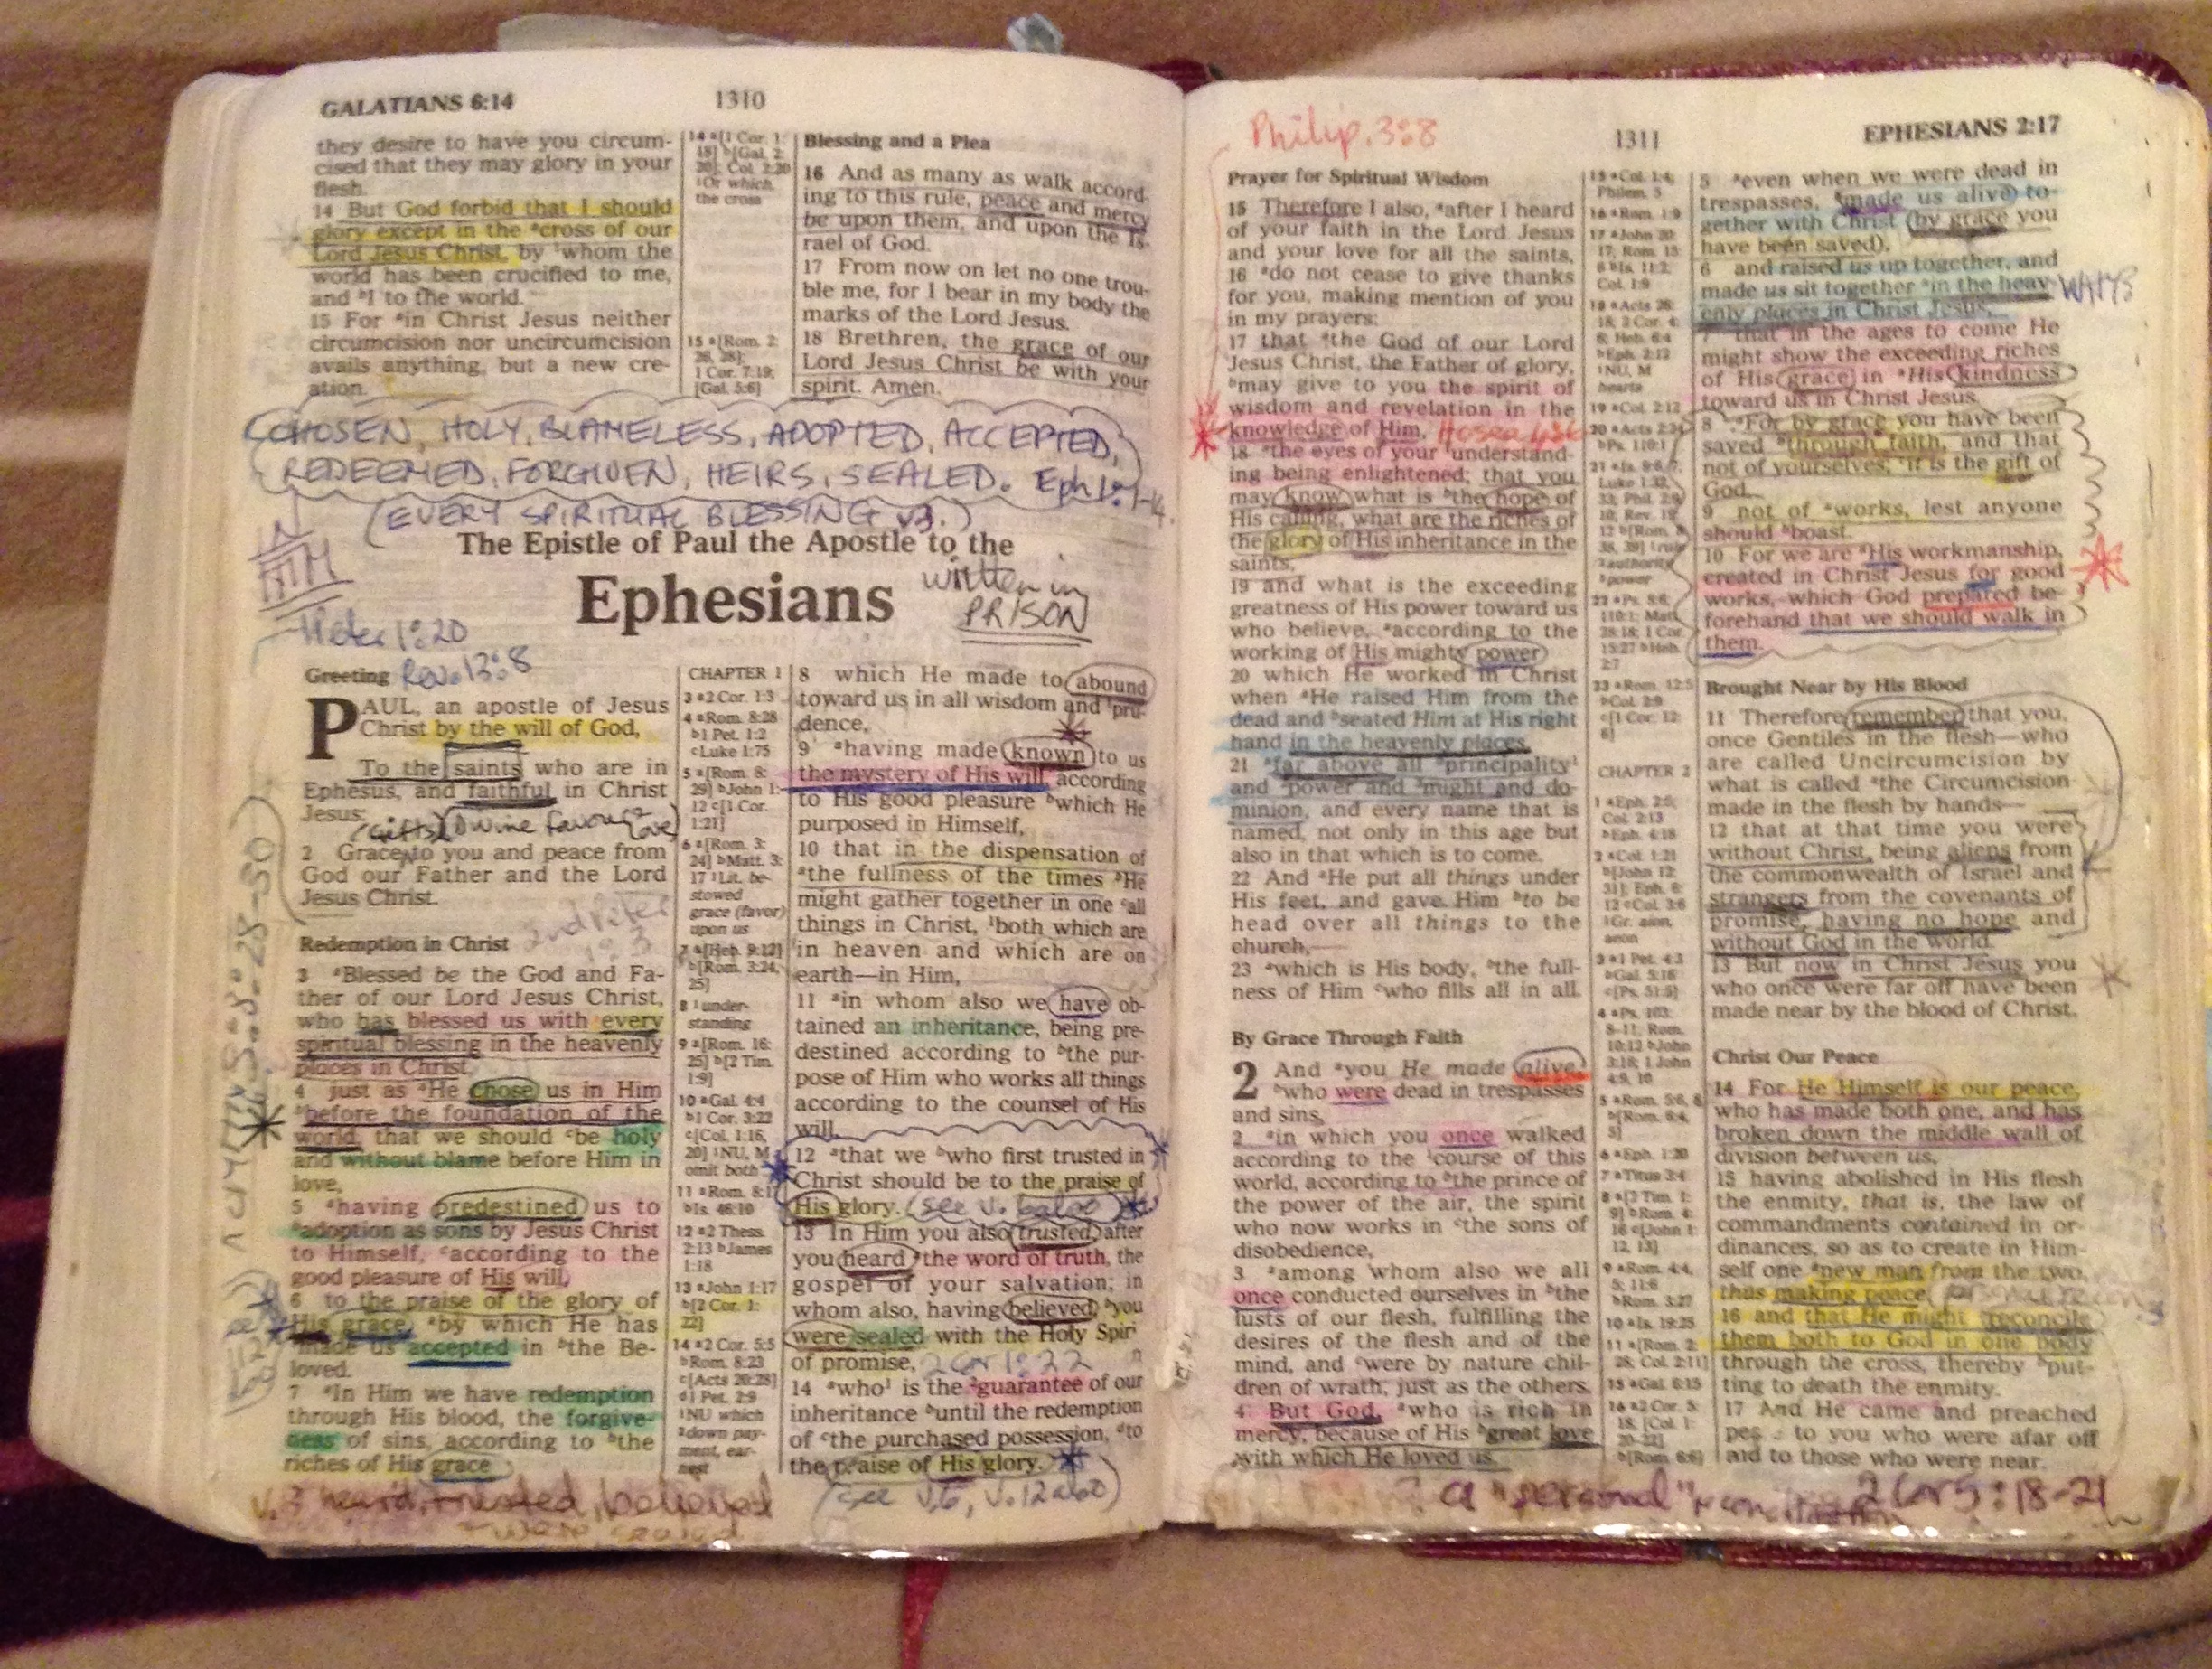 GALATIANS 6:14
1310
they desire to have you circum-
cised that they may glory in your
flesh.
14 But God forbid that I should
glory except in the ᵃcross of our
Lord Jesus Christ, by ¹whom the
world has been crucified to me,
and ᵇI to the world.
15 For ᵃin Christ Jesus neither
circumcision nor uncircumcision
avails anything, but a new cre-
ation.
14 ᵃ[1 Cor. 1:
18] ᵇ[Gal. 2:
20]; Col. 2:20
¹Or which,
the cross
15 ᵃ[Rom. 2:
26, 28];
1 Cor. 7:19;
[Gal. 5:6]
Blessing and a Plea
16 And as many as walk accord-
ing to this rule, peace and mercy
be upon them, and upon the Is-
rael of God.
17 From now on let no one trou-
ble me, for I bear in my body the
marks of the Lord Jesus.
18 Brethren, the grace of our
Lord Jesus Christ be with your
spirit. Amen.
CHOSEN, HOLY, BLAMELESS, ADOPTED, ACCEPTED,
REDEEMED, FORGIVEN, HEIRS, SEALED. Eph 1:1-14.
(EVERY SPIRITUAL BLESSING v3.)
The Epistle of Paul the Apostle to the
Ephesians
written in
PRISON
1 Peter 1:20
Rev. 13:8
Greeting
PAUL, an apostle of Jesus
Christ by the will of God,
To the saints who are in
Ephesus, and faithful in Christ
Jesus:
(Gifts) Divine favour
2 Grace to you and peace from
God our Father and the Lord
Jesus Christ.
2nd Peter
1:3
Redemption in Christ
3 ᵃBlessed be the God and Fa-
ther of our Lord Jesus Christ,
who has blessed us with every
spiritual blessing in the heavenly
places in Christ,
4 just as ᵃHe chose us in Him
ᵇbefore the foundation of the
world, that we should ᶜbe holy
and without blame before Him in
love,
5 ᵃhaving predestined us to
ᵇadoption as sons by Jesus Christ
to Himself, ᶜaccording to the
good pleasure of His will,
6 to the praise of the glory of
His grace, ᵃby which He has
¹made us accepted in ᵇthe Be-
loved.
7 ᵃIn Him we have redemption
through His blood, the forgive-
ness of sins, according to ᵇthe
riches of His grace
8:28-30
CHAPTER 1
3 ᵃ2 Cor. 1:3
4 ᵃRom. 8:28
ᵇ1 Pet. 1:2
ᶜLuke 1:75
5 ᵃ[Rom. 8:
29] ᵇJohn 1:
12 ᶜ[1 Cor.
1:21]
6 ᵃ[Rom. 3:
24] ᵇMatt. 3:
17 ¹Lit. be-
stowed
grace (favor)
upon us
7 ᵃ[Heb. 9:12]
ᵇ[Rom. 3:24,
25]
8 ¹under-
standing
9 ᵃ[Rom. 16:
25] ᵇ[2 Tim.
1:9]
10 ᵃGal. 4:4
ᵇ1 Cor. 3:22
ᶜ[Col. 1:16,
20] ¹NU, M
omit both
11 ᵃRom. 8:17
ᵇIs. 46:10
12 ᵃ2 Thess.
2:13 ᵇJames
1:18
13 ᵃJohn 1:17
ᵇ[2 Cor. 1:
22]
14 ᵃ2 Cor. 5:5
ᵇRom. 8:23
ᶜ[Acts 20:28]
ᵈ1 Pet. 2:9
¹NU which
²down pay-
ment, ear-
nest
8 which He made to abound
toward us in all wisdom and ¹pru-
dence,
9 ᵃhaving made known to us
the mystery of His will, according
to His good pleasure ᵇwhich He
purposed in Himself,
10 that in the dispensation of
ᵃthe fullness of the times ᵇHe
might gather together in one ᶜall
things in Christ, ¹both which are
in heaven and which are on
earth—in Him,
11 ᵃin whom also we have ob-
tained an inheritance, being pre-
destined according to ᵇthe pur-
pose of Him who works all things
according to the counsel of His
will,
12 ᵃthat we ᵇwho first trusted in
Christ should be to the praise of
His glory. (see v. 6 also)
13 In Him you also trusted, after
you heard ᵃthe word of truth, the
gospel of your salvation; in
whom also, having believed, ᵇyou
were sealed with the Holy Spiri
of promise, 2 Cor 1:22
14 ᵃwho¹ is the ²guarantee of our
inheritance ᵇuntil the redemption
of ᶜthe purchased possession, ᵈto
the praise of His glory.
(see v.6, v.12 also)
heard, trusted, believed
were sealed
Philip. 3:8
1311
EPHESIANS 2:17
Prayer for Spiritual Wisdom
15 Therefore I also, ᵃafter I heard
of your faith in the Lord Jesus
and your love for all the saints,
16 ᵃdo not cease to give thanks
for you, making mention of you
in my prayers:
17 that ᵃthe God of our Lord
Jesus Christ, the Father of glory,
ᵇmay give to you the spirit of
wisdom and revelation in the
knowledge of Him, Hosea 4:6
18 ᵃthe eyes of your ¹understand-
ing being enlightened; that you
may know what is ᵇthe hope of
His calling, what are the riches of
the glory of His inheritance in the
saints,
19 and what is the exceeding
greatness of His power toward us
who believe, ᵃaccording to the
working of His mighty power
20 which He worked in Christ
when ᵃHe raised Him from the
dead and ᵇseated Him at His right
hand in the heavenly places,
21 ᵃfar above all ᵇprincipality¹
and ²power and ³might and do-
minion, and every name that is
named, not only in this age but
also in that which is to come.
22 And ᵃHe put all things under
His feet, and gave Him ᵇto be
head over all things to the
church,
23 ᵃwhich is His body, ᵇthe full-
ness of Him ᶜwho fills all in all.
By Grace Through Faith
2 And ᵃyou He made alive,
ᵇwho were dead in trespasses
and sins,
2 ᵃin which you once walked
according to the ¹course of this
world, according to ᵇthe prince of
the power of the air, the spirit
who now works in ᶜthe sons of
disobedience,
3 ᵃamong whom also we all
once conducted ourselves in ᵇthe
lusts of our flesh, fulfilling the
desires of the flesh and of the
mind, and ᶜwere by nature chil-
dren of wrath, just as the others.
4 But God, ᵃwho is rich in
mercy, because of His ᵇgreat love
with which He loved us,
15 ᵃCol. 1:4;
Philem. 5
16 ᵃRom. 1:9
17 ᵃJohn 20:
17; Rom. 15:
6 ᵇIs. 11:2;
Col. 1:9
18 ᵃActs 26:
18; 2 Cor. 4:
6; Heb. 6:4
ᵇEph. 2:12
¹NU, M
hearts
19 ᵃCol. 2:12
20 ᵃActs 2:24
ᵇPs. 110:1
21 ᵃIs. 9:6, 7;
Luke 1:32,
33; Phil. 2:9,
10; Rev. 19:
12 ᵇ[Rom. 8:
38, 39] ¹rule
²authority
³power
22 ᵃPs. 8:6;
110:1; Matt.
28:18; 1 Cor.
15:27 ᵇHeb.
2:7
23 ᵃRom. 12:5
ᵇCol. 2:9
ᶜ[1 Cor. 12:
6]
CHAPTER 2
1 ᵃEph. 2:5;
Col. 2:13
ᵇEph. 4:18
2 ᵃCol. 1:21
ᵇ[John 12:
31]; Eph. 6:
12 ᶜCol. 3:6
¹Gr. aion,
aeon
3 ᵃ1 Pet. 4:3
ᵇGal. 5:16
ᶜ[Ps. 51:5]
4 ᵃPs. 103:
8–11; Rom.
10:12 ᵇJohn
3:16; 1 John
4:9, 10
5 ᵃRom. 5:6, 8
ᵇ[Rom. 6:4,
5]
6 ᵃEph. 1:20
7 ᵃTitus 3:4
8 ᵃ[2 Tim. 1:
9] ᵇRom. 4:
16 ᶜ[John 1:
12, 13]
9 ᵃRom. 4:4,
5; 11:6
ᵇRom. 3:27
10 ᵃIs. 19:25
11 ᵃ[Rom. 2:
28; Col. 2:11]
15 ᵃGal. 6:15
16 ᵃ2 Cor. 5:
18; [Col. 1:
20–22]
ᵇ[Rom. 6:6]
5 ᵃeven when we were dead in
trespasses, ᵇmade us alive to-
gether with Christ (by grace you
have been saved),
6 and raised us up together, and
made us sit together ᵃin the heav-
enly places in Christ Jesus,
WHY?
7 that in the ages to come He
might show the exceeding riches
of His grace in ᵃHis kindness
toward us in Christ Jesus.
8 ᵃFor by grace you have been
saved ᵇthrough faith, and that
not of yourselves; ᶜit is the gift of
God,
9 not of ᵃworks, lest anyone
should ᵇboast.
10 For we are ᵃHis workmanship,
created in Christ Jesus for good
works, which God prepared be-
forehand that we should walk in
them.
Brought Near by His Blood
11 Therefore remember that you,
once Gentiles in the flesh—who
are called Uncircumcision by
what is called ᵃthe Circumcision
made in the flesh by hands—
12 that at that time you were
without Christ, being aliens from
the commonwealth of Israel and
strangers from the covenants of
promise, having no hope and
without God in the world.
13 But now in Christ Jesus you
who once were far off have been
made near by the blood of Christ.
Christ Our Peace
14 For He Himself is our peace,
who has made both one, and has
broken down the middle wall of
division between us,
15 having abolished in His flesh
the enmity, that is, the law of
commandments contained in or-
dinances, so as to create in Him-
self one ᵃnew man from the two,
thus making peace,
16 and that He might ᵃreconcile
them both to God in one body
through the cross, thereby ᵇput-
ting to death the enmity.
17 And He came and preached
to you who were afar off
and to those who were near.
a "personal" reconciliation 2 Cor 5:18-21